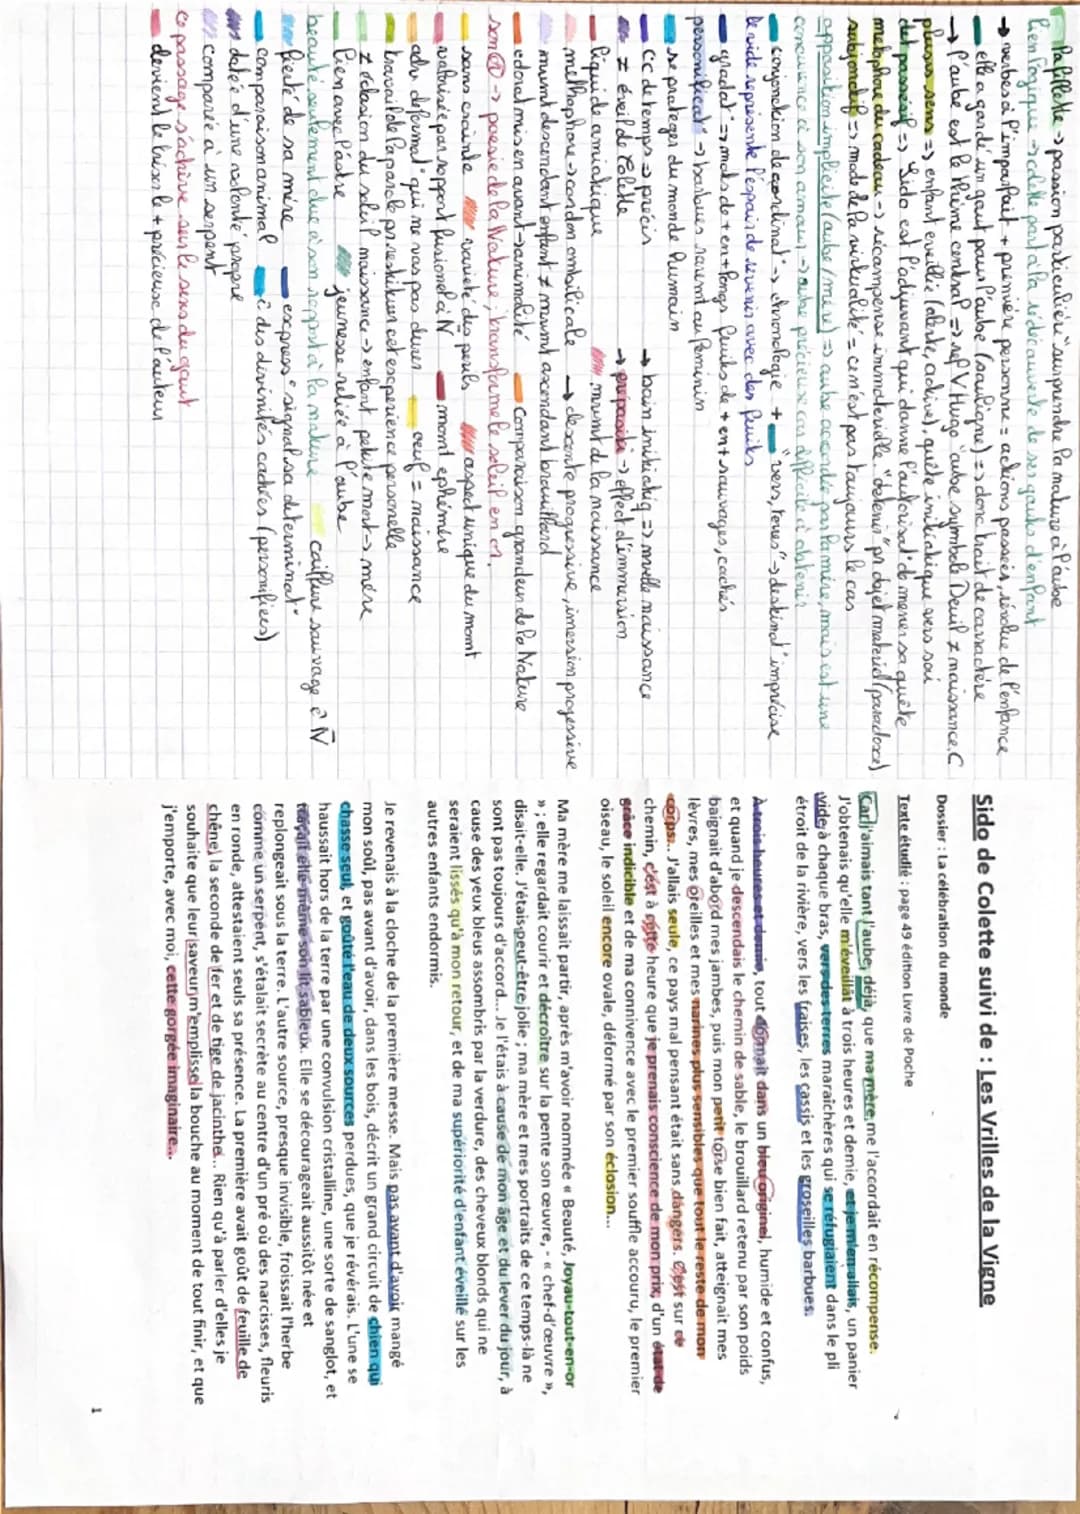 la fillette -> passion particulière "surprendre la nature à l'aube
lien logique -> colette part à la redécouverte de ses goûts d'enfant
-> verbes à l'imparfait + première personne = actions passées, révolue de l'enfance
elle a gardé un gout pour l'aube (souligne) => donc trait de caractère
-> l'aube est le thème central => ref V Hugo aube symbole Deuil ≠ naissance.C
plusieurs sens => enfant éveillée (alerte, active), quête initiatique vers soi
=> Sido est l'adjuvant qui donne l'autorisat° de mener sa quête
métaphore du cadeau -> récompense immatérielle. "obtenir" pr objet matériel (paradoxe)
subjonctif => mode de la virtualité = ce n'est pas toujours le cas
apposition implicite (aube/mère) => aube accordée par la mère, mais est une
concurrence à son amour -> aube précieuse car difficile à obtenir
conjonction de coordinat° -> chronologie + "vers, terres" -> destinat° imprécise
le vide représente l'espoir de revenir avec des fruits
gradat° => mots de + en + longs fruits de + en + sauvages, cachés
personnificat° -> barbues rarement au féminin
se protéger du monde humain
CC de temps => précis -> bain initiatiq => nvelle naissance
≠ éveil de Colette -> préposit° -> effect d'immersion
liquide amniotique mvmt de la naissance
métaphore -> cordon ombilicale -> descente progressive, imersion progressive
mvmt descendant enfant ≠ mvmt ascendant brouillard
odorat mis en avant -> animalité Comparaison grandeur de la Nature
son -> poésie de la Nature, transforme le soleil en or.
sans crainte rareté des périls aspect unique du momt
valorisée par rapport fusionnel à N momt éphémère
adv déformat° qui ne vas pas durer oeuf = naissance
travail de la parole, restituer cet expérience personelle
≠ éclosion du soleil naissance -> enfant petite mort -> mère
lien avec l'astre jeunesse reliée à l'aube
beauté seulement due à son rapport à la nature coiffure sauvage ê N
fierté de sa mère express° signal sa déterminat°
comparaison animal ê des divinités cachées (personnifiées)
dotée d'une volonté propre
comparée à un serpent
Ce passage s'achève sur le sens du goût
devient le trésor le + précieux de l'auteur
Sido de Colette suivi de : Les Vrilles de la Vigne
Dossier : La célébration du monde
Texte étudié : page 49 édition Livre de Poche
Car j'aimais tant l'aube, déjà, que ma mère me l'accordait en récompense.
J'obtenais qu'elle m'éveillât à trois heures et demie, et je m'en allais, un panier
vide à chaque bras, vers des terres maraîchères qui se réfugiaient dans le pli
étroit de la rivière, vers les fraises, les cassis et les groseilles barbues.
À trois heures et demie, tout dormait dans un bleu originel, humide et confus,
et quand je descendais le chemin de sable, le brouillard retenu par son poids
baignait d'abord mes jambes, puis mon petit torse bien fait, atteignait mes
lèvres, mes oreilles et mes narines plus sensibles que tout le reste de mon
corps... J'allais seule, ce pays mal pensant était sans dangers. C'est sur ce
chemin, c'est à cette heure que je prenais conscience de mon prix, d'un état de
grâce indicible et de ma connivence avec le premier souffle accouru, le premier
oiseau, le soleil encore ovale, déformé par son éclosion...
Ma mère me laissait partir, après m'avoir nommée « Beauté, Joyau-tout-en-or
» ; elle regardait courir et décroître sur la pente son œuvre, - « chef-d'œuvre »,
disait-elle. J'étais peut-être jolie ; ma mère et mes portraits de ce temps-là ne
sont pas toujours d'accord... Je l'étais à cause de mon âge et du lever du jour, à
cause des yeux bleus assombris par la verdure, des cheveux blonds qui ne
seraient lissés qu'à mon retour, et de ma supériorité d'enfant éveillé sur les
autres enfants endormis.
Je revenais à la cloche de la première messe. Mais pas avant d'avoir mangé
mon soûl, pas avant d'avoir, dans les bois, décrit un grand circuit de chien qui
chasse seul, et goûté l'eau de deux sources perdues, que je révérais. L'une se
haussait hors de la terre par une convulsion cristalline, une sorte de sanglot, et
traçait elle-même son lit sableux. Elle se décourageait aussitôt née et
replongeait sous la terre. L'autre source, presque invisible, froissait l'herbe
comme un serpent, s'étalait secrète au centre d'un pré où des narcisses, fleuris
en ronde, attestaient seuls sa présence. La première avait goût de feuille de
chêne, la seconde de fer et de tige de jacinthe... Rien qu'à parler d'elles je
souhaite que leur saveur m'emplisse la bouche au moment de tout finir, et que
j'emporte, avec moi, cette gorgée imaginaire...
1